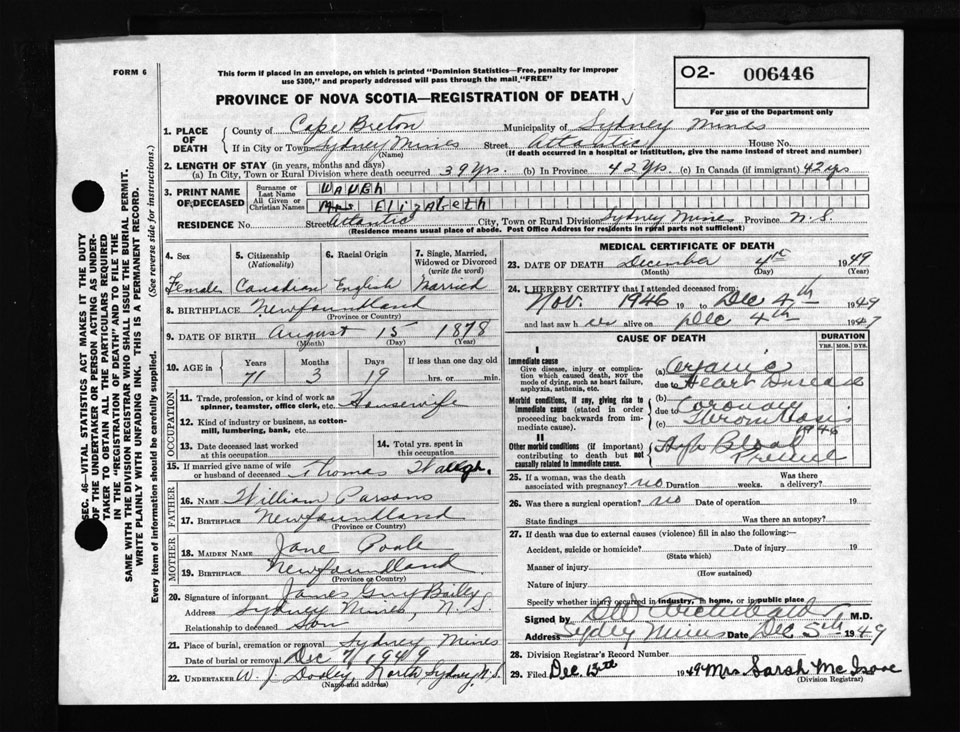 FORM 6
This form if placed in an envelope, on which is printed "Dominion Statistics—Free, penalty for improper
use $300," and properly addressed will pass through the mail, "FREE"
PROVINCE OF NOVA SCOTIA—REGISTRATION OF DEATH
O2- 006446
For use of the Department only
1. PLACE OF DEATH
County of Cape Breton Municipality of Sydney Mines
If in City or Town Sydney Mines Street Atlantic House No.
(Name) (If death occurred in a hospital or institution, give the name instead of street and number)
2. LENGTH OF STAY (in years, months and days)
(a) In City, Town or Rural Division where death occurred 39 yrs. (b) In Province 42 yrs. (c) In Canada (if immigrant) 42 yrs
3. PRINT NAME OF DECEASED
Surname or Last Name WAUGH
All Given or Christian Names Mrs Elizabeth
RESIDENCE No. Street Atlantic City, Town or Rural Division Sydney Mines Province N.S.
(Residence means usual place of abode. Post Office Address for residents in rural parts not sufficient)
4. Sex
Female
5. Citizenship
(Nationality)
Canadian
6. Racial Origin
English
7. Single, Married, Widowed or Divorced
(write the word)
Married
8. BIRTHPLACE Newfoundland
(Province or Country)
9. DATE OF BIRTH August 15 1878
(Month) (Day) (Year)
10. AGE in Years Months Days If less than one day old
71 3 19 hrs. or min.
OCCUPATION
11. Trade, profession or kind of work as
spinner, teamster, office clerk, etc. Housewife
12. Kind of industry or business, as cotton-
mill, lumbering, bank, etc.
13. Date deceased last worked
at this occupation
14. Total yrs. spent in
this occupation
15. If married give name of wife
or husband of deceased Thomas Waugh.
FATHER
16. NAME William Parsons
17. BIRTHPLACE Newfoundland
(Province or Country)
MOTHER
18. MAIDEN NAME Jane Poole
19. BIRTHPLACE Newfoundland
(Province or Country)
20. Signature of informant James Guy Bailly
Address Sydney Mines, N.S.
Relationship to deceased Son
21. Place of burial, cremation or removal Sydney Mines
Date of burial or removal Dec 7, 1949
22. UNDERTAKER W. J. Dooley, North Sydney, N.S.
(Name and address)
MEDICAL CERTIFICATE OF DEATH
23. DATE OF DEATH December 4th 1949
(Month) (Day) (Year)
24. I HEREBY CERTIFY that I attended deceased from:
Nov. 1946 19 to Dec 4th 1949
and last saw her alive on Dec 4th 194
CAUSE OF DEATH
DURATION
YRS. MOS. DYS.
I
Immediate cause
Give disease, injury or complica-
tion which caused death, NOT the
mode of dying, such as heart failure,
asphyxia, asthenia, etc.
(a) Organic
due to Heart Disease
Morbid conditions, if any, giving rise to
immediate cause (stated in order
proceeding backwards from im-
mediate cause).
(b)
due to Coronary
(c) Thrombosis
1946
II
Other morbid conditions (if important)
contributing to death but not
causally related to immediate cause.
High Blood
Pressure
25. If a woman, was the death
associated with pregnancy? no Duration weeks. Was there
a delivery?
26. Was there a surgical operation? no Date of operation 19
State findings Was there an autopsy?
27. If death was due to external causes (violence) fill in also the following:—
Accident, suicide or homicide? Date of injury 19
(State which)
Manner of injury
(How sustained)
Nature of injury
Specify whether injury occurred in industry, in home, or in public place
Signed by Archibald M.D.
Address Sydney Mines Date Dec 5th 1949
28. Division Registrar's Record Number
29. Filed Dec. 13th 1949 Mrs. Sarah McIsaac
(Division Registrar)
SEC. 46—VITAL STATISTICS ACT MAKES IT THE DUTY
OF THE UNDERTAKER OR PERSON ACTING AS UNDER-
TAKER TO OBTAIN ALL THE PARTICULARS REQUIRED
IN THE "REGISTRATION OF DEATH" AND TO FILE THE
SAME WITH THE DIVISION REGISTRAR WHO SHALL ISSUE THE BURIAL PERMIT.
WRITE PLAINLY WITH UNFADING INK. THIS IS A PERMANENT RECORD.
Every item of information should be carefully supplied. (See reverse side for instructions.)